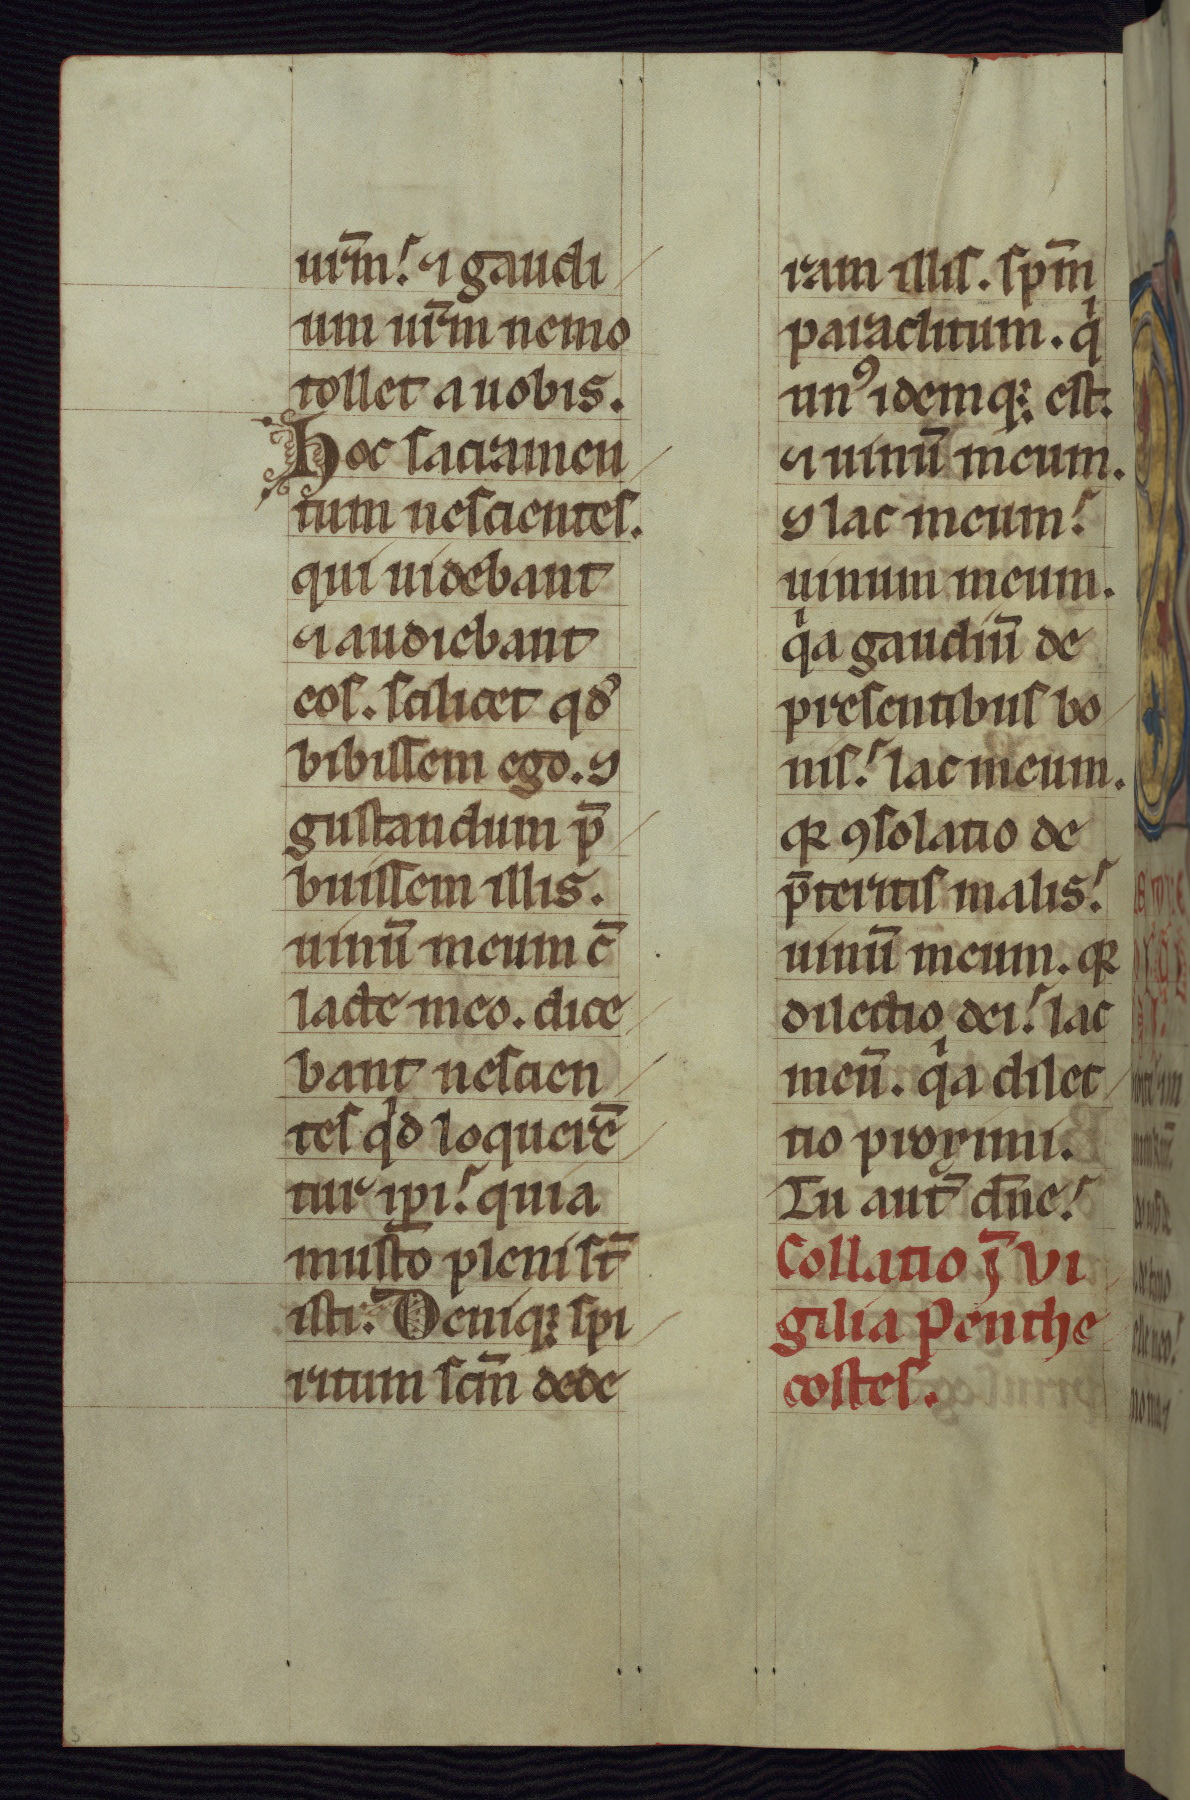 uir̄m. ⁊ gaudi
um uir̄m nemo
tollet a uobis.
Hoc sacramen
tum nescientes.
qui uidebant
⁊ audiebant
eos. scilicet qd̕
bibissem ego. ⁊
gustandum p̄
buissem illis.
uinū meum c̄
lacte meo. dice
bant nescien
tes qͥd loquerē
tur ip̄i. quia
musto pleni st̄
isti. Deniqꝫ spi
ritum scm̄ dede
ram illis. spm̄
paraclitum. qͥ
unꝰ idemqꝫ est.
⁊ uinū meum.
⁊ lac meum.
uinum meum.
qͥa gaudiū de
presentibus bo
nis. lac meum.
qꝛ ꝯsolatio de
p̄teritis malis.
uinū meum. qꝛ
dilectio dei. lac
meū. qͥa dilec
tio proximi.
Tu aut̄ dn̄e.
Collatio j̄ vi
gilia Penthe
costes.